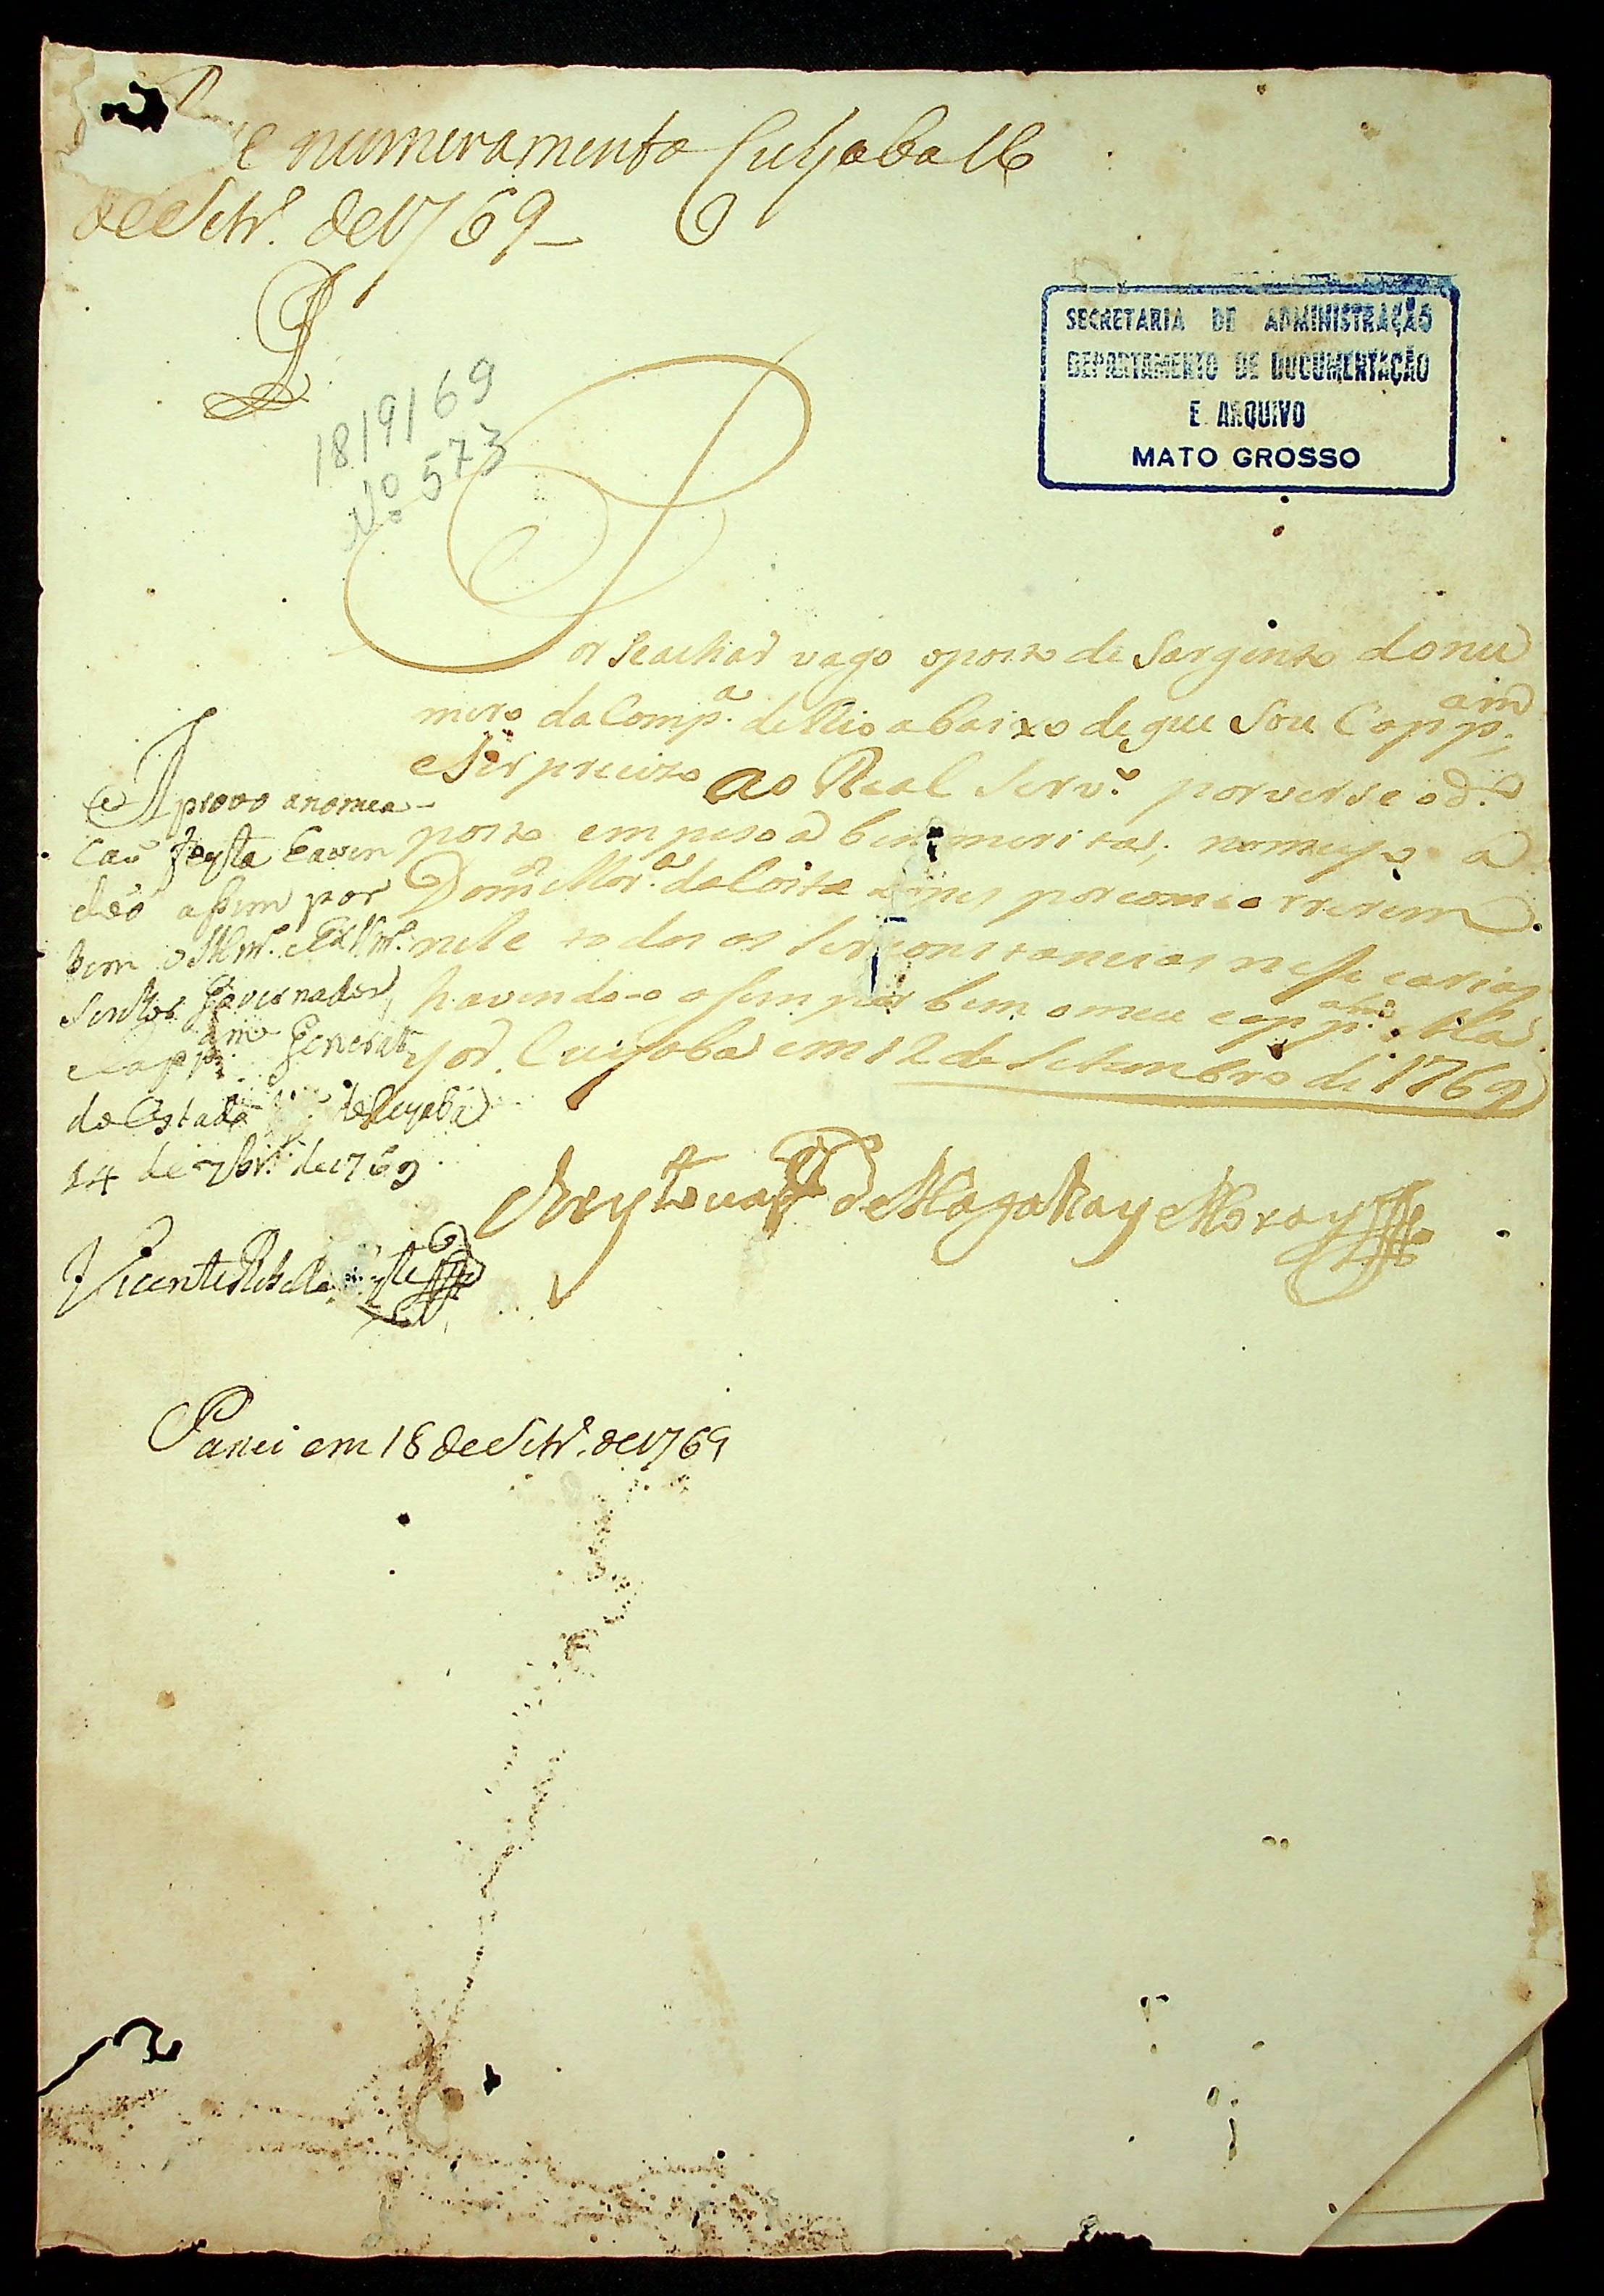 e numeramento Cuyaba 16
de Setr.º de 1769
18/9/69
Nº 573
SECRETARIA DE ADMINISTRAÇÃO
DEPARTAMENTO DE DOCUMENTAÇÃO
E ARQUIVO
MATO GROSSO
Por se achar vago o posto de Sargento do nu
mero da Comp.ª de Rio abaixo de que sou Capp.am
e ser precizo ao Real Serv.º por verse o d.º
posto em pesoa benemerita; nomeyo a
Dom.os Mor.ª da Costa por comcorrerem
nele todas as sirconstancias nesecarias
havendo-o asim por bem o meu capp.am Ma
yor. Cuiyaba em 12 de Setembro de 1769
de Magalhay Moray
Aprovo a nomea-
caõ feysta e aven
deo assim por
bem o Illmº. e Exmº.
Senhor Governador,
e Capp.am General
do Estado de Cuyaba
14 de 7br.º de 1769
Vicente Rebello
Panei em 18 de Setr.º de 1769